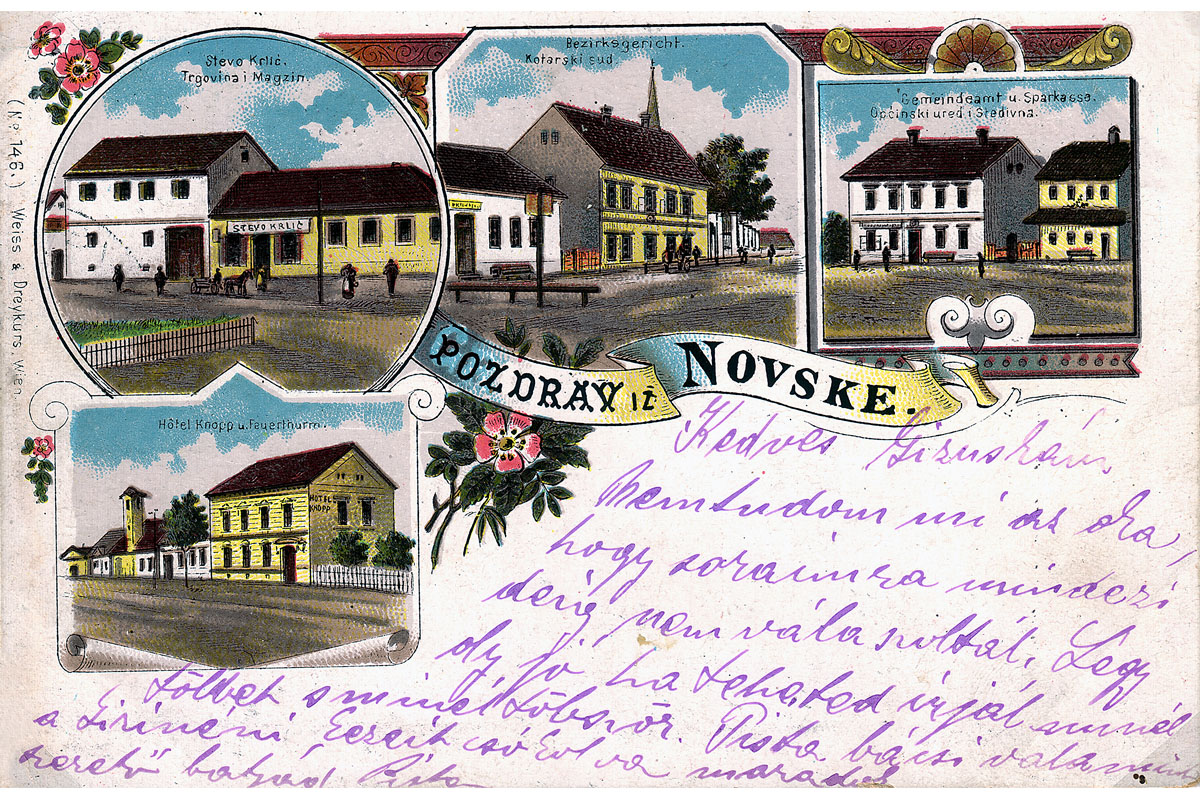 Stevo Krlić.
Trgovina i Magzin.
STEVO KRLIČ
Bezirksgericht.
Kotarski sud
Gemeindeamt u. Sparkasse.
Općinski ured i Štedivna.
(No. 146.) Weiss & Dreykurs, Wien.
POZDRAV IZ NOVSKE.
Hôtel Knopp u. Feuerthurm.
HOTEL
KNOPP
Kedves Gizuskám
Nemtudom mi az oka,
hogy soraimra mindezi
deig nem válaszoltál. Légy
oly jó, ha teheted irjál minél
többet s minél többször. Pista bácsi valamint
a Lirinéni kezeit csókolva maradok
szerető bátyád Pista